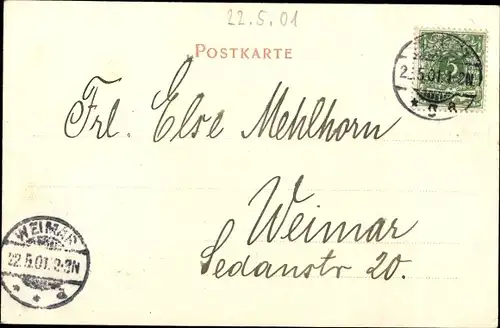 22.5.01
POSTKARTE
5
22.5.01.1-2N
* g a
Frl. Else Mehlhorn
Weimar
Sedanstr 20.
WEIMAR
22.5.01.2-3N
* * a